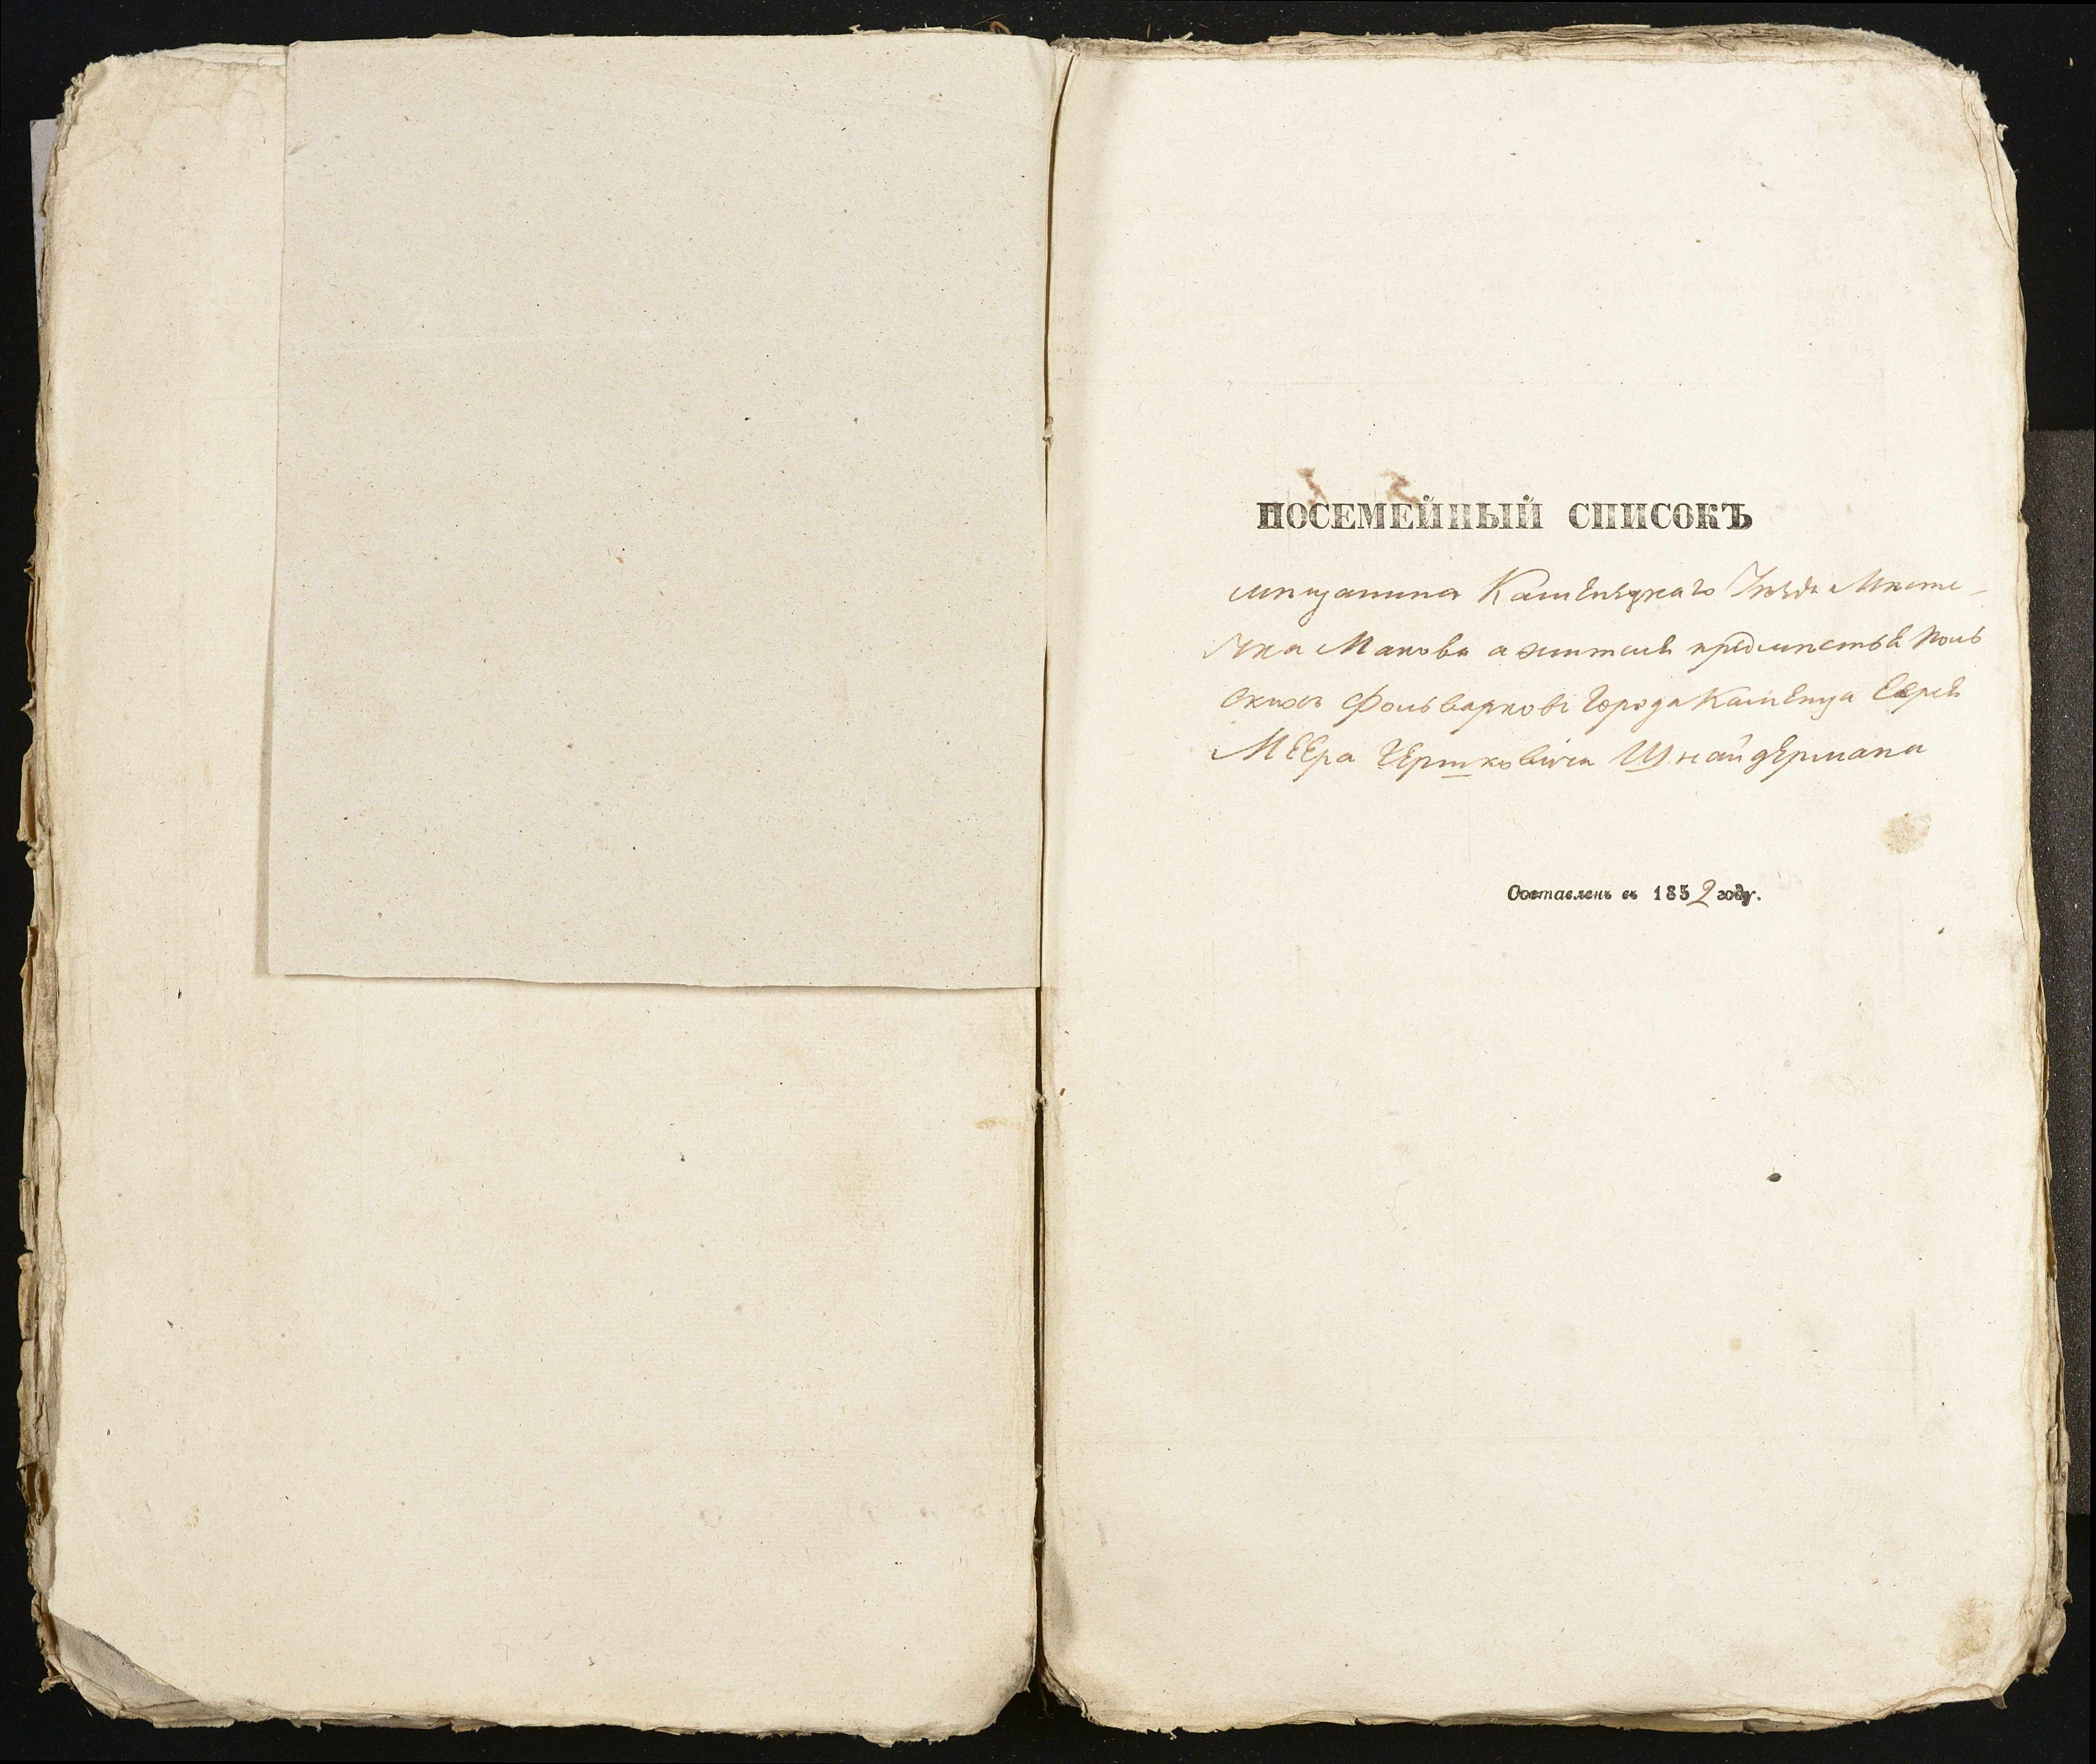 ПОСЕМЕЙНЫЙ СПИСОКЪ
мѣщанина Каменецкаго Уѣзда Мѣсте-
чка Макова а жителя предмѣстья Поль
скихъ Фольварковъ города Каменца Еврея
Меера Гершковича Шнайдермана
Составленъ въ 1852 году.